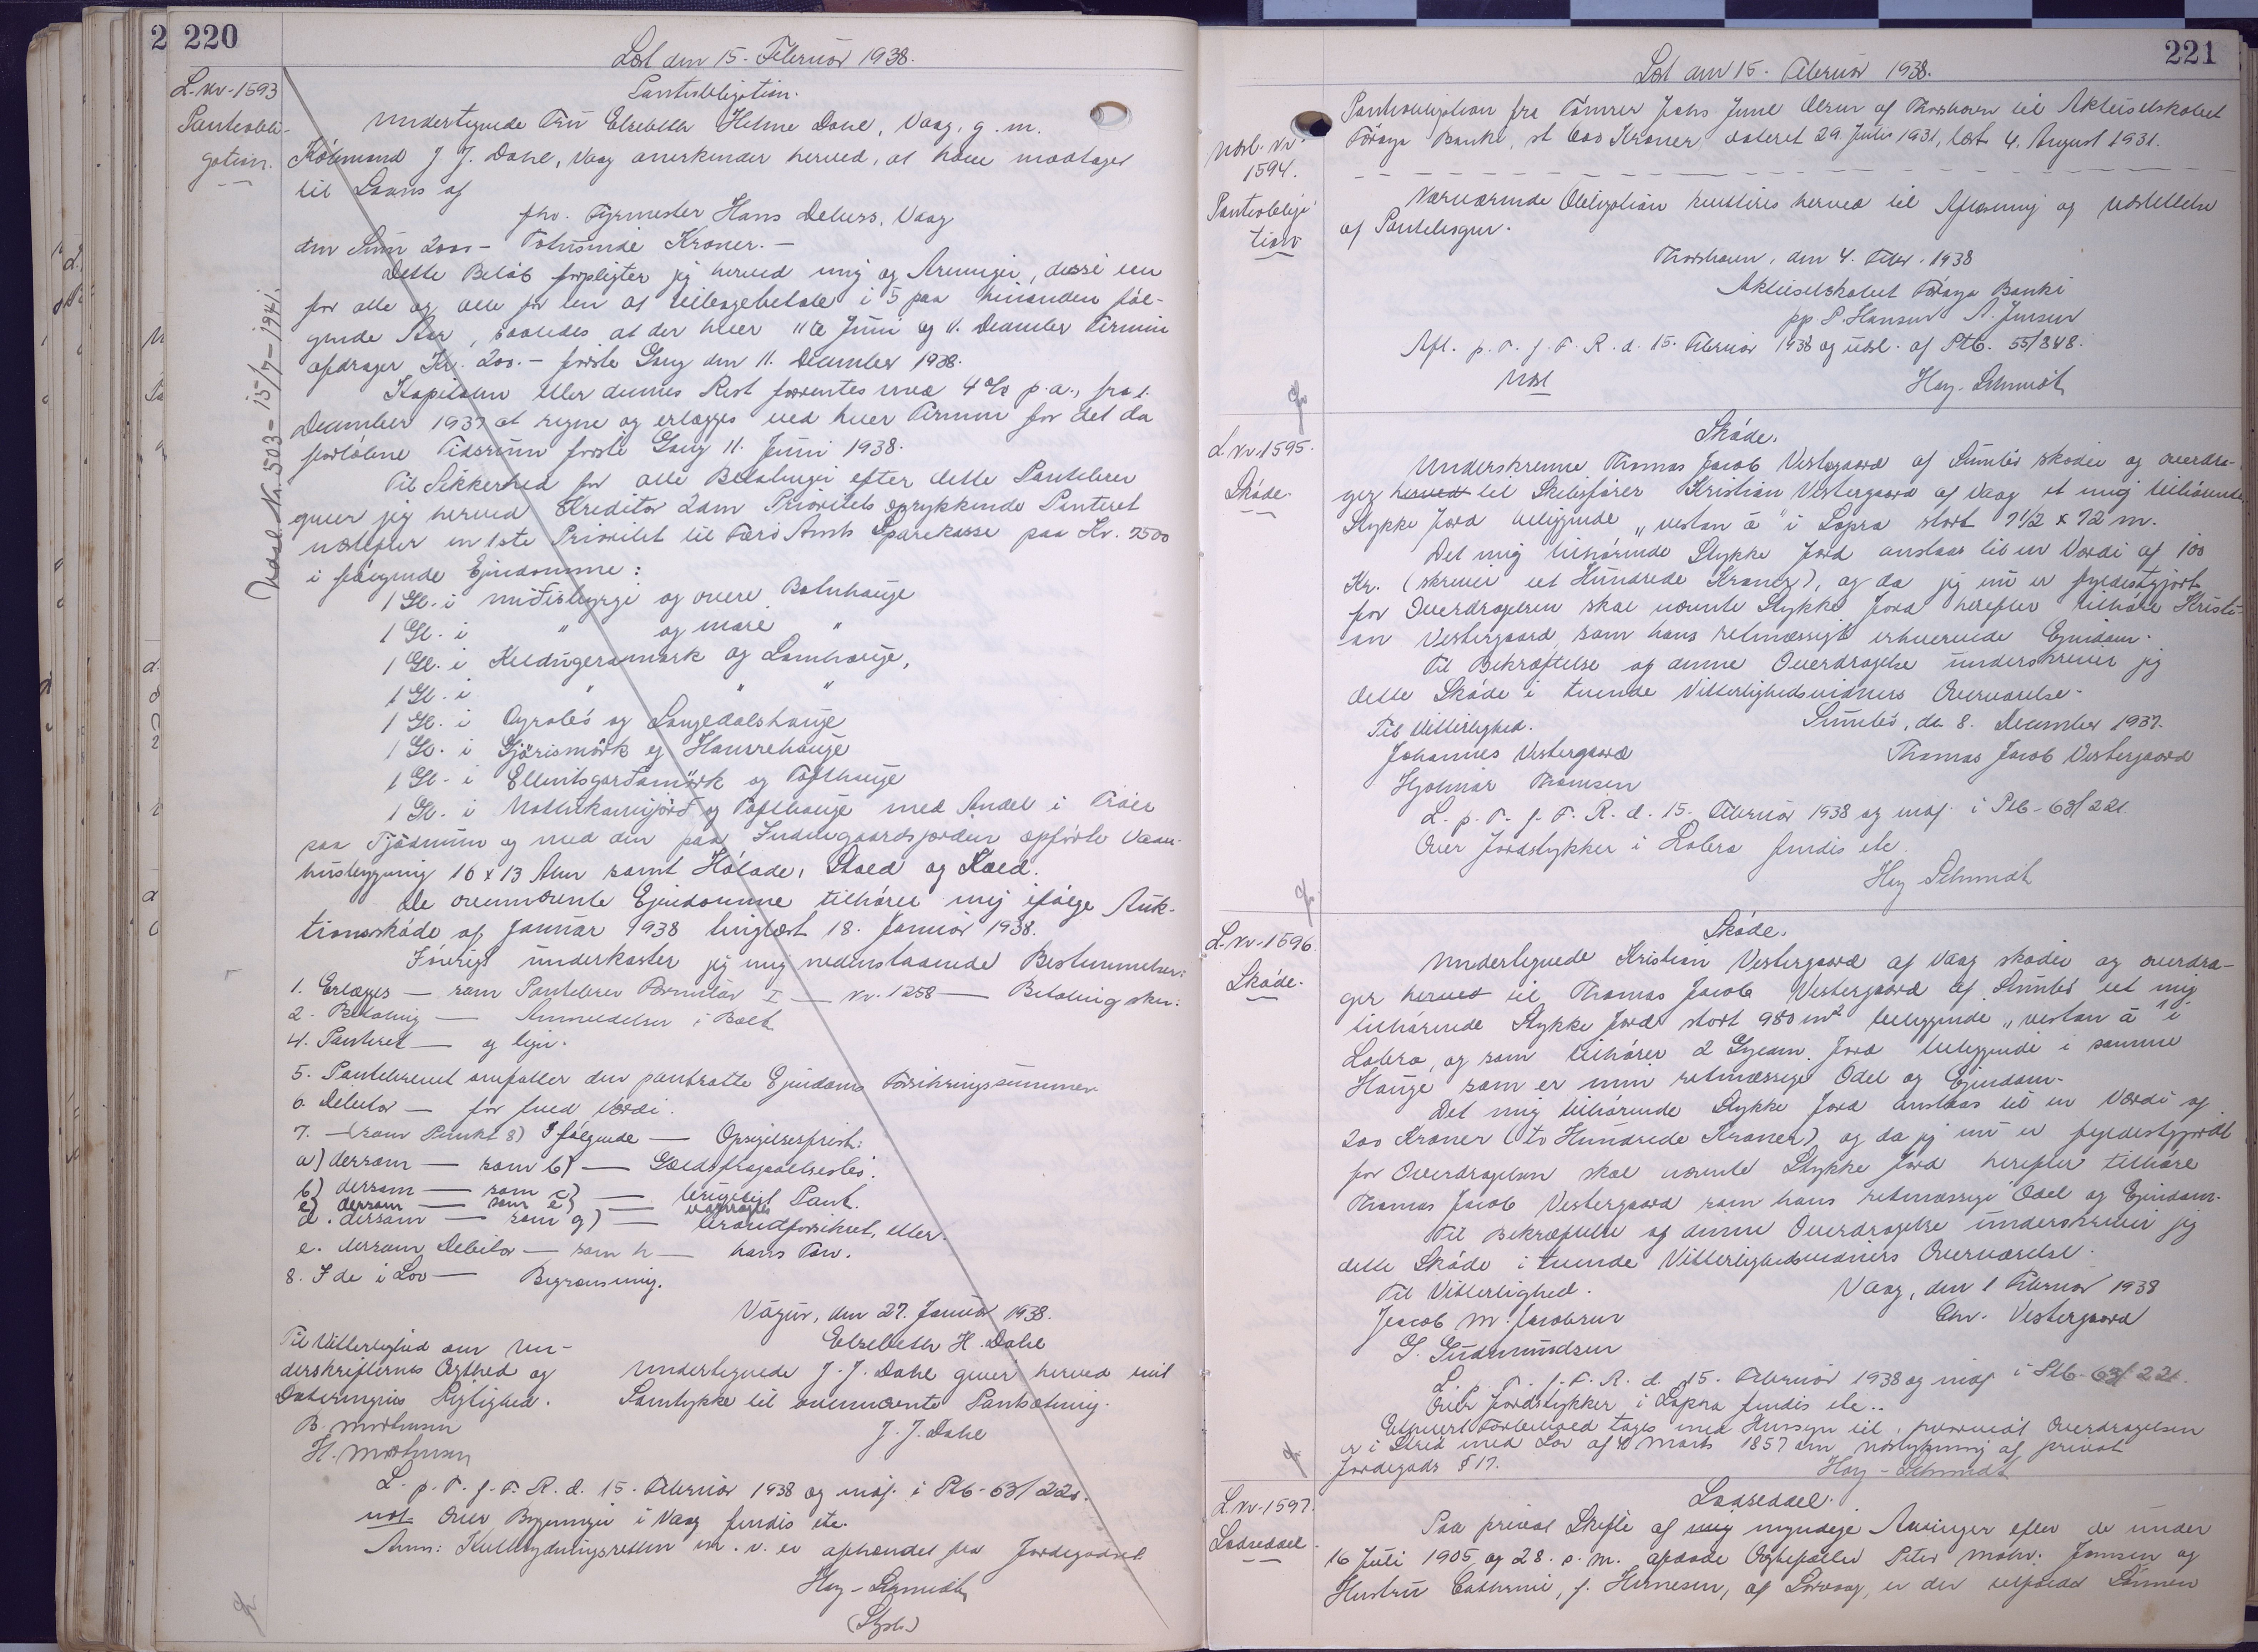 220
Læst den 15. Februar 1938.
L. Nr. 1593
Panteobli-
gation.
Udsl. Nr. 503 - 15/7 - 1941.
Panteobligation.
Undertegnede Fru Elsebeth Helene Dahl, Vaag, g. m.
Købmand J. J. Dahl, Vaag anerkender herved, at have modtaget
til Laans af
fhv. Fyrmester Hans Debess, Vaag
den Sum 2000 - Totusinde Kroner. -
Dette Beløb forpligter jeg herved mig og Arvinger, disse een
for alle og alle for een at tilbagebetale i 5 paa hinanden føl-
gende Aar, saaledes at der hver 11te Juni og 11. December Termin
afdrages Kr. 200.- første Gang den 11. December 1938.
Kapitalen eller dennes Rest forrentes med 4 % p. a., fra 1.
December 1937 at regne og erlægges ved hver Termin for det da
forløbne Tidsrum første Gang 11. Juni 1938.
Til Sikkerhed for alle Betalinger efter dette Pantebrev
giver jeg herved Kreditor 2den Prioritets oprykkende Panteret
næstefter en 1ste Prioritet til Færø Amts Sparekasse paa Kr. 7500
i følgende Ejendomme:
1 Gl. i miðisbyrgi og øvere Bølnhauge
1 Gl. i " og mare "
1 Gl. i Keldugeramørk og Lamhauge,
1 Gl. i " " "
1 Gl. i Oyralis og Langedalshauge
1 Gl. i Gjørismørk og Hamrehauge
1 Gl. i Ellintsgarðamørk og Tofthauge
1 Gl. i og Tofthauge med Andel i Træer
paa Tjødnum og med den paa Indmgaardsjorden opførte Vaan-
husbygning 16 x 13 Alen samt Hølade, Stald og Kæld.
De ovennævnte Ejendomme tilhører mig ifølge Auk-
tionsskøde af Januar 1938 tinglæst 18. Januar 1938.
Iøvrigt underkaster jeg mig nedenstaaende Bestemmelser:
1. Erlægges — som Pantebrev Formular I — Nr. 1258 — Betaling sker:
2. Betaling — Anmeldelser i Bælt
4. Panteret — og lign.
5. Pantebrevet omfatter den pantsatte Ejendoms Forsikringssummer
6. Debitor — for fuld Værdi.
7. — (som Punkt 8) Ifølgende — Opsigelsesfrist:
a) dersom — som b) — Gældsfragaaelsesbo.
b) dersom — som c) — betryggende Pant.
c) dersom — som e) — vanrøgtes
d. dersom — som g) — brandforsikret, eller.
e. dersom Debitor — som h — hans Tarv.
8. I de i Lov — Begrænsning.
Vágur, den 27. Januar 1938.
Elsebeth H. Dahl
Til Vitterlighed om Un-
derskrifternes Ægthed og
Dateringens Rigtighed.
B. Mortensen
H. Mortensen
Undertegnede J. J. Dahl giver herved mit
Samtykke til ovennævnte Pantsætning.
J. J. Dahl
L. p. T. f. F. R. d. 15. Februar 1938 og indf. i Ptb. 63/220.
not. Over Bygninger i Vaag findes ete.
Anm: Kulbrydningsretten m. v. er afhændet fra Jordegodset.
Hay-Schmidt
(Styh.)
221
Læst den 15. Februar 1938.
Udsl. Nr.
1594.
Panteobliga-
tion
Panteobligation fra Tømrer Johs Juul Olsen af Thorshavn til Aktieselskabet
Føroya Banki, st. 600 Kroner dateret 29. Juli 1931, læst 4. August 1931.
Nærværende Obligation kvitteres herved til Aflæsning og Udslettelse
af Pantebogen.
Thorshavn, den 4. Febr. 1938
Aktieselskabet Føroya Banki
pp P. Hansen A. Jensen
Afl. p. T. f. F. R. d. 15. Februar 1938 og udsl. af Ptb. 55/848.
Udsl
Hay-Schmidt
L. Nr. 1595.
Skøde.
Skøde.
Underskrevne Thomas Jacob Vestergaard af Sumbø skøder og overdra-
ger herved til Skibsfører Kristian Vestergaard af Vaag et mig tilhørende
Stykke Jord beliggende „vestan á" i Lopra stort 7 1/2 x 72 m.
Det mig tilhørende Stykke Jord anslaas til en Værdi af 100
Kr. (skriver eet Hundrede Kroner), og da jeg nu er fyldestgjort
for Overdragelsen skal nævnte Stykke Jord herefter tilhøre Kristi-
an Vestergaard som hans retmæssigt erhvervede Ejendom.
Til Bekræftelse af denne Overdragelse underskriver jeg
dette Skøde i tvende Vitterlighedsvidners Overværelse.
Til Vitterlighed.
Sumbø, d. 8. December 1937.
Johannes Vestergaard
Thomas Jacob Vestergaard
Hjalmar Thomsen
L. p. T. f. F. R. d. 15. Februar 1938 og indf. i Ptb. 63/221.
Over Jordstykker i Lobra findes ete.
Hay-Schmidt
L. Nr. 1596.
Skøde.
Skøde.
Undertegnede Kristian Vestergaard af Vaag skøder og overdra-
ger herved til Thomas Jacob Vestergaard af Sumbø et mig
tilhørende Stykke Jord stort 980 m² beliggende „vestan á" i
Lobra, og som tilhører 2 Gyllen Jord beliggende i samme
Hauge som er min retmæssige Odel og Ejendom.
Det mig tilhørende Stykke Jord anslaas til en Værdi af
200 Kroner (to Hundrede Kroner), og da jeg nu er fyldestgjordt
for Overdragelsen skal nævnte Stykke Jord herefter tilhøre
Thomas Jacob Vestergaard som hans retmæssige Odel og Ejendom.
Til Bekræftelse af denne Overdragelse underskriver jeg
dette Skøde i tvende Vitterlighedsvidners Overværelse.
Til Vitterlighed.
Vaag, den 1 Februar 1938
Jacob M. Jacobsen
Chr. Vestergaard
G. Gudmundsen
L. p. T. f. F. R. d. 15. Februar 1938 og indf. i Ptb. 63/221.
Over Jordstykker i Lopra findes ete..
Ethvert Forbehold tages med Hensyn til, hvorvidt Overdragelsen
er i Strid med Lov af 4 Marts 1857 om Udstykning af privat
Jordegods § 17.
Hay-Schmidt
L. Nr. 1597.
Lodseddel
Lodseddel.
Paa privat Skifte af myndige Arvinger efter de under
16 Juli 1905 og 28. s. M. afdøde Ægtefæller Peter Mohr Joensen og
Hustru Cathrine, f. Hernesen, af Sørvaag, er der tilfaldet Sønnen